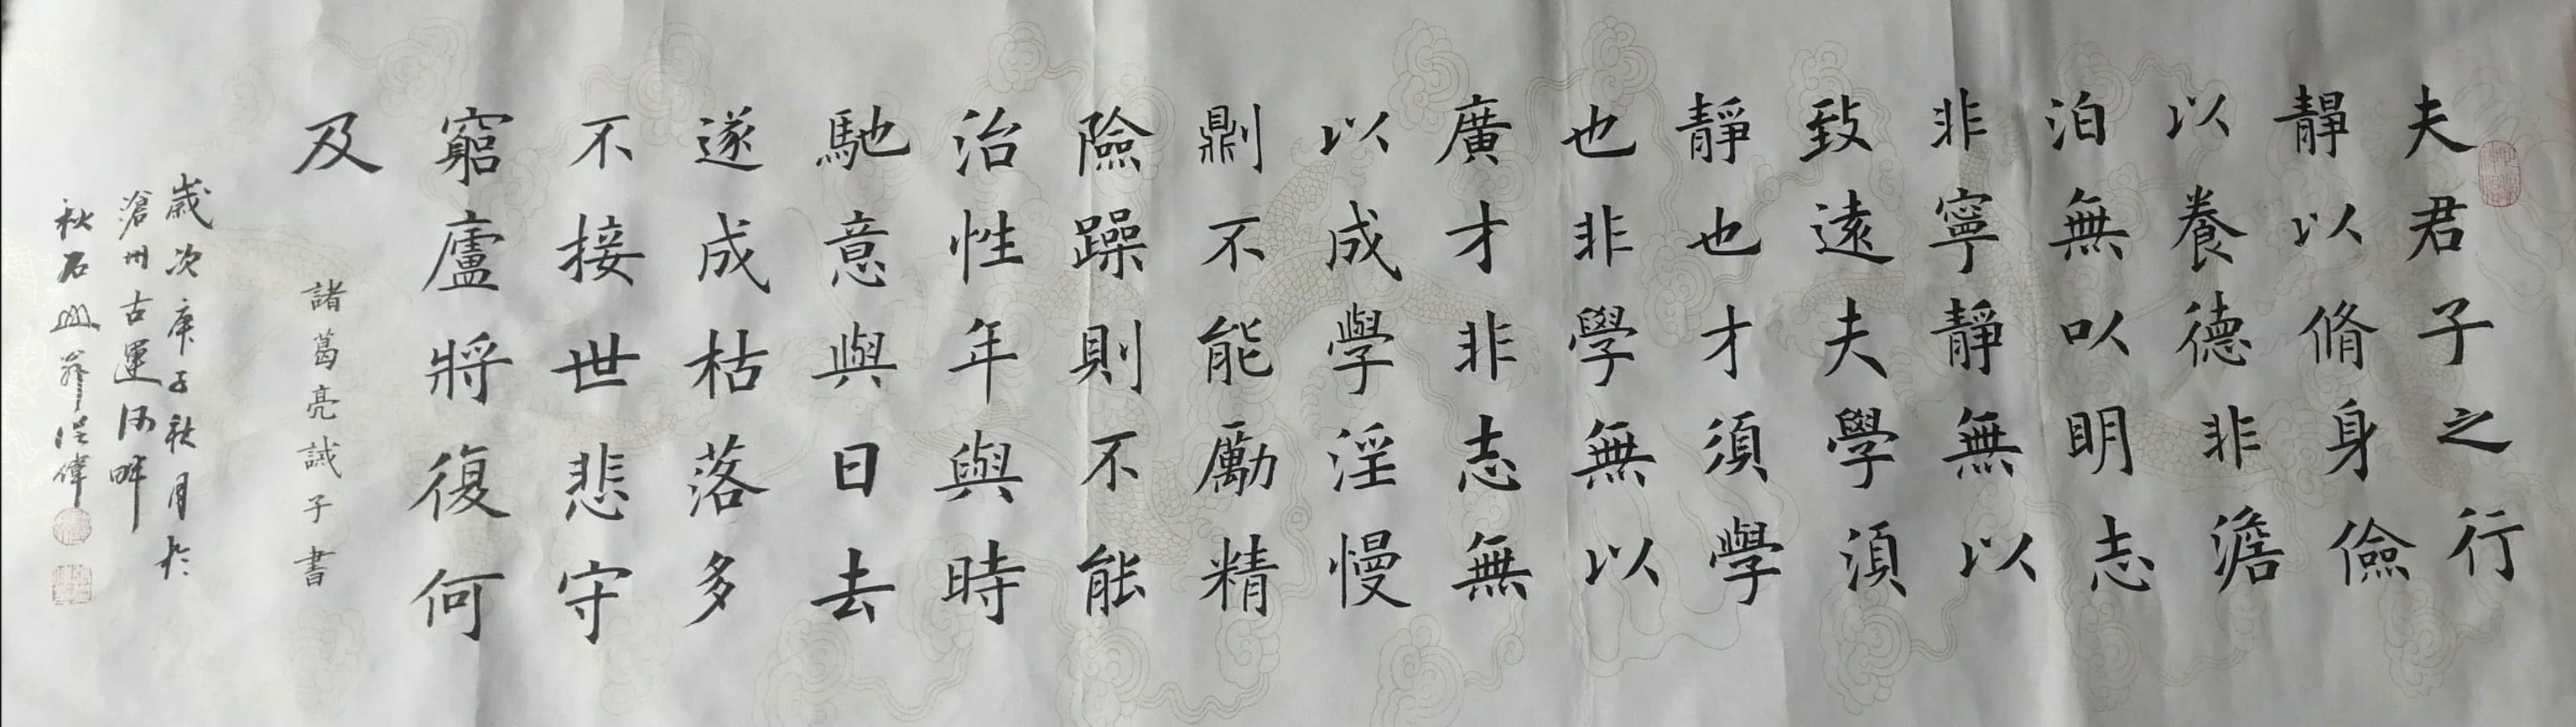 夫君子之行
靜以脩身儉
以養德非澹
泊無以明志
非寧靜無以
致遠夫學須
靜也才須學
也非學無以
廣才非志無
以成學淫慢
劘不能勵精
險躁則不能
治性年與時
馳意與日去
遂成枯落多
不接世悲守
窮廬將復何
及
諸葛亮誡子書
歲次庚子秋月於
滄州古運河畔
秋石山翁洪偉